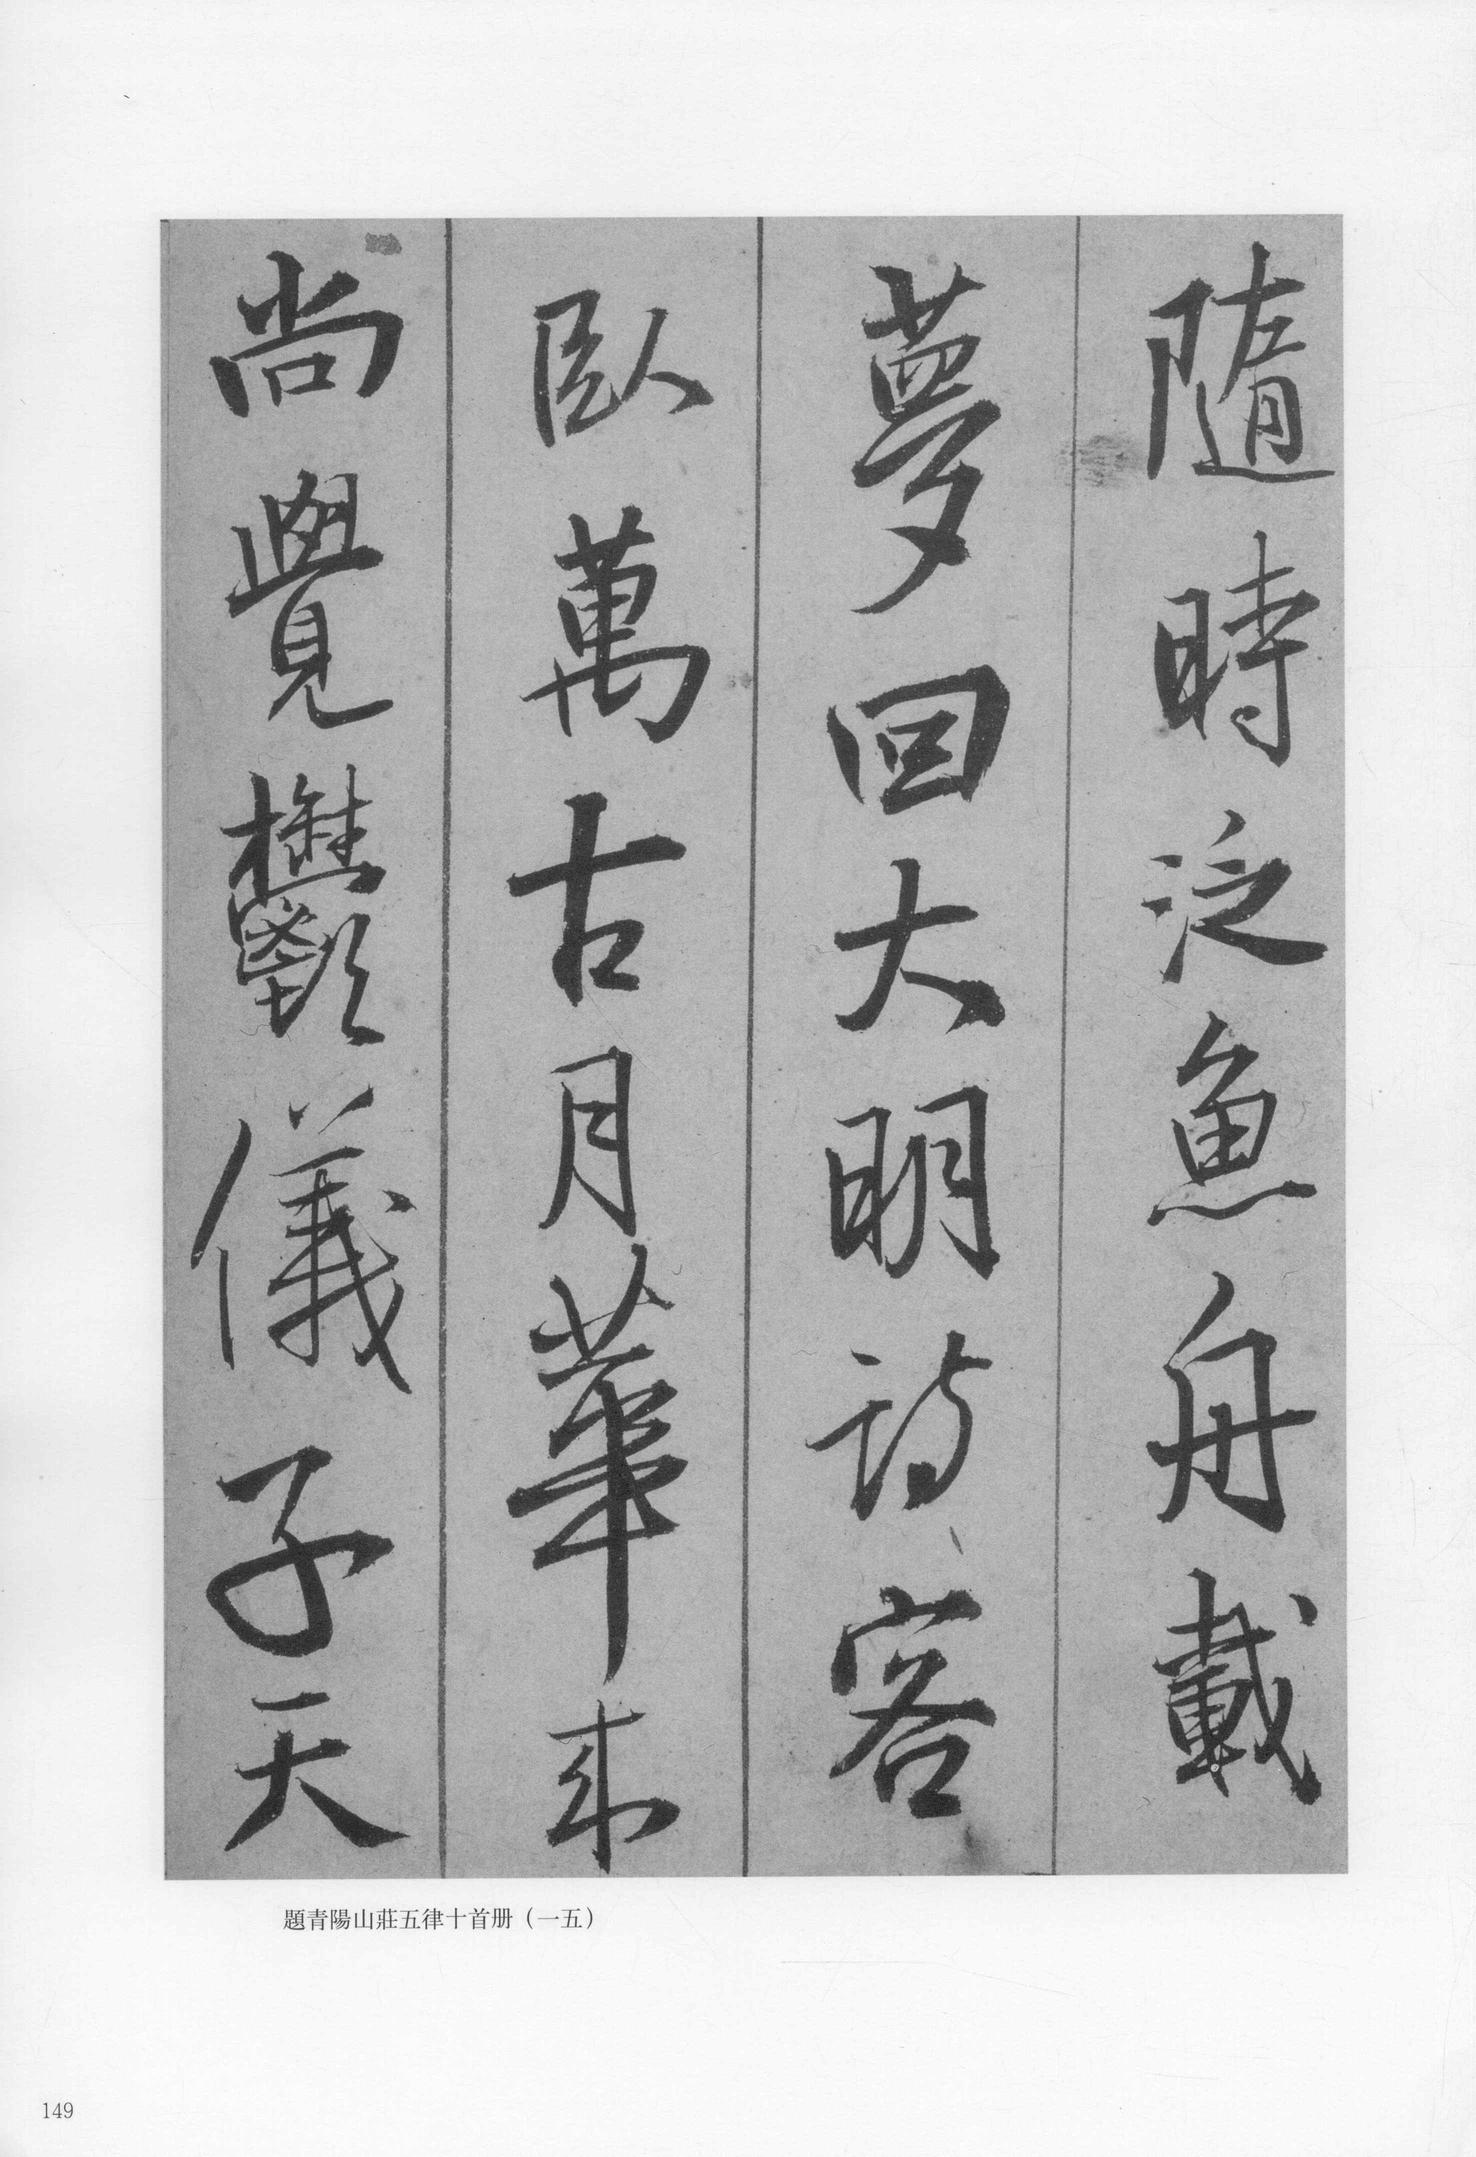 隨時泛魚舟載
夢回大明詩客
臥萬古月華來
尚覺鬱儀子天
題青陽山莊五律十首册（一五）
149